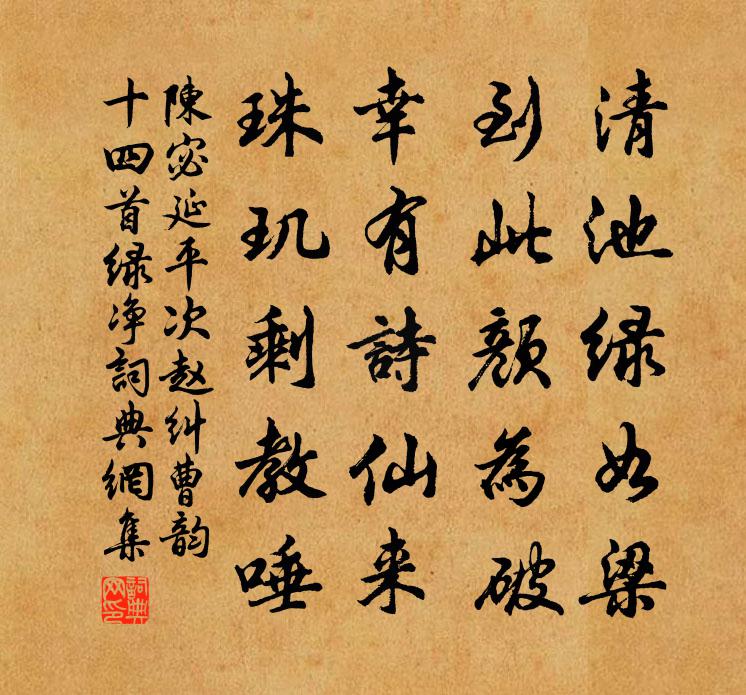 清池绿如染
到此颜為破
幸有詩仙来
珠玑剩教唾
陳宓延平次赵糾曹韵
十四首绿净詞典網集
詞典网印